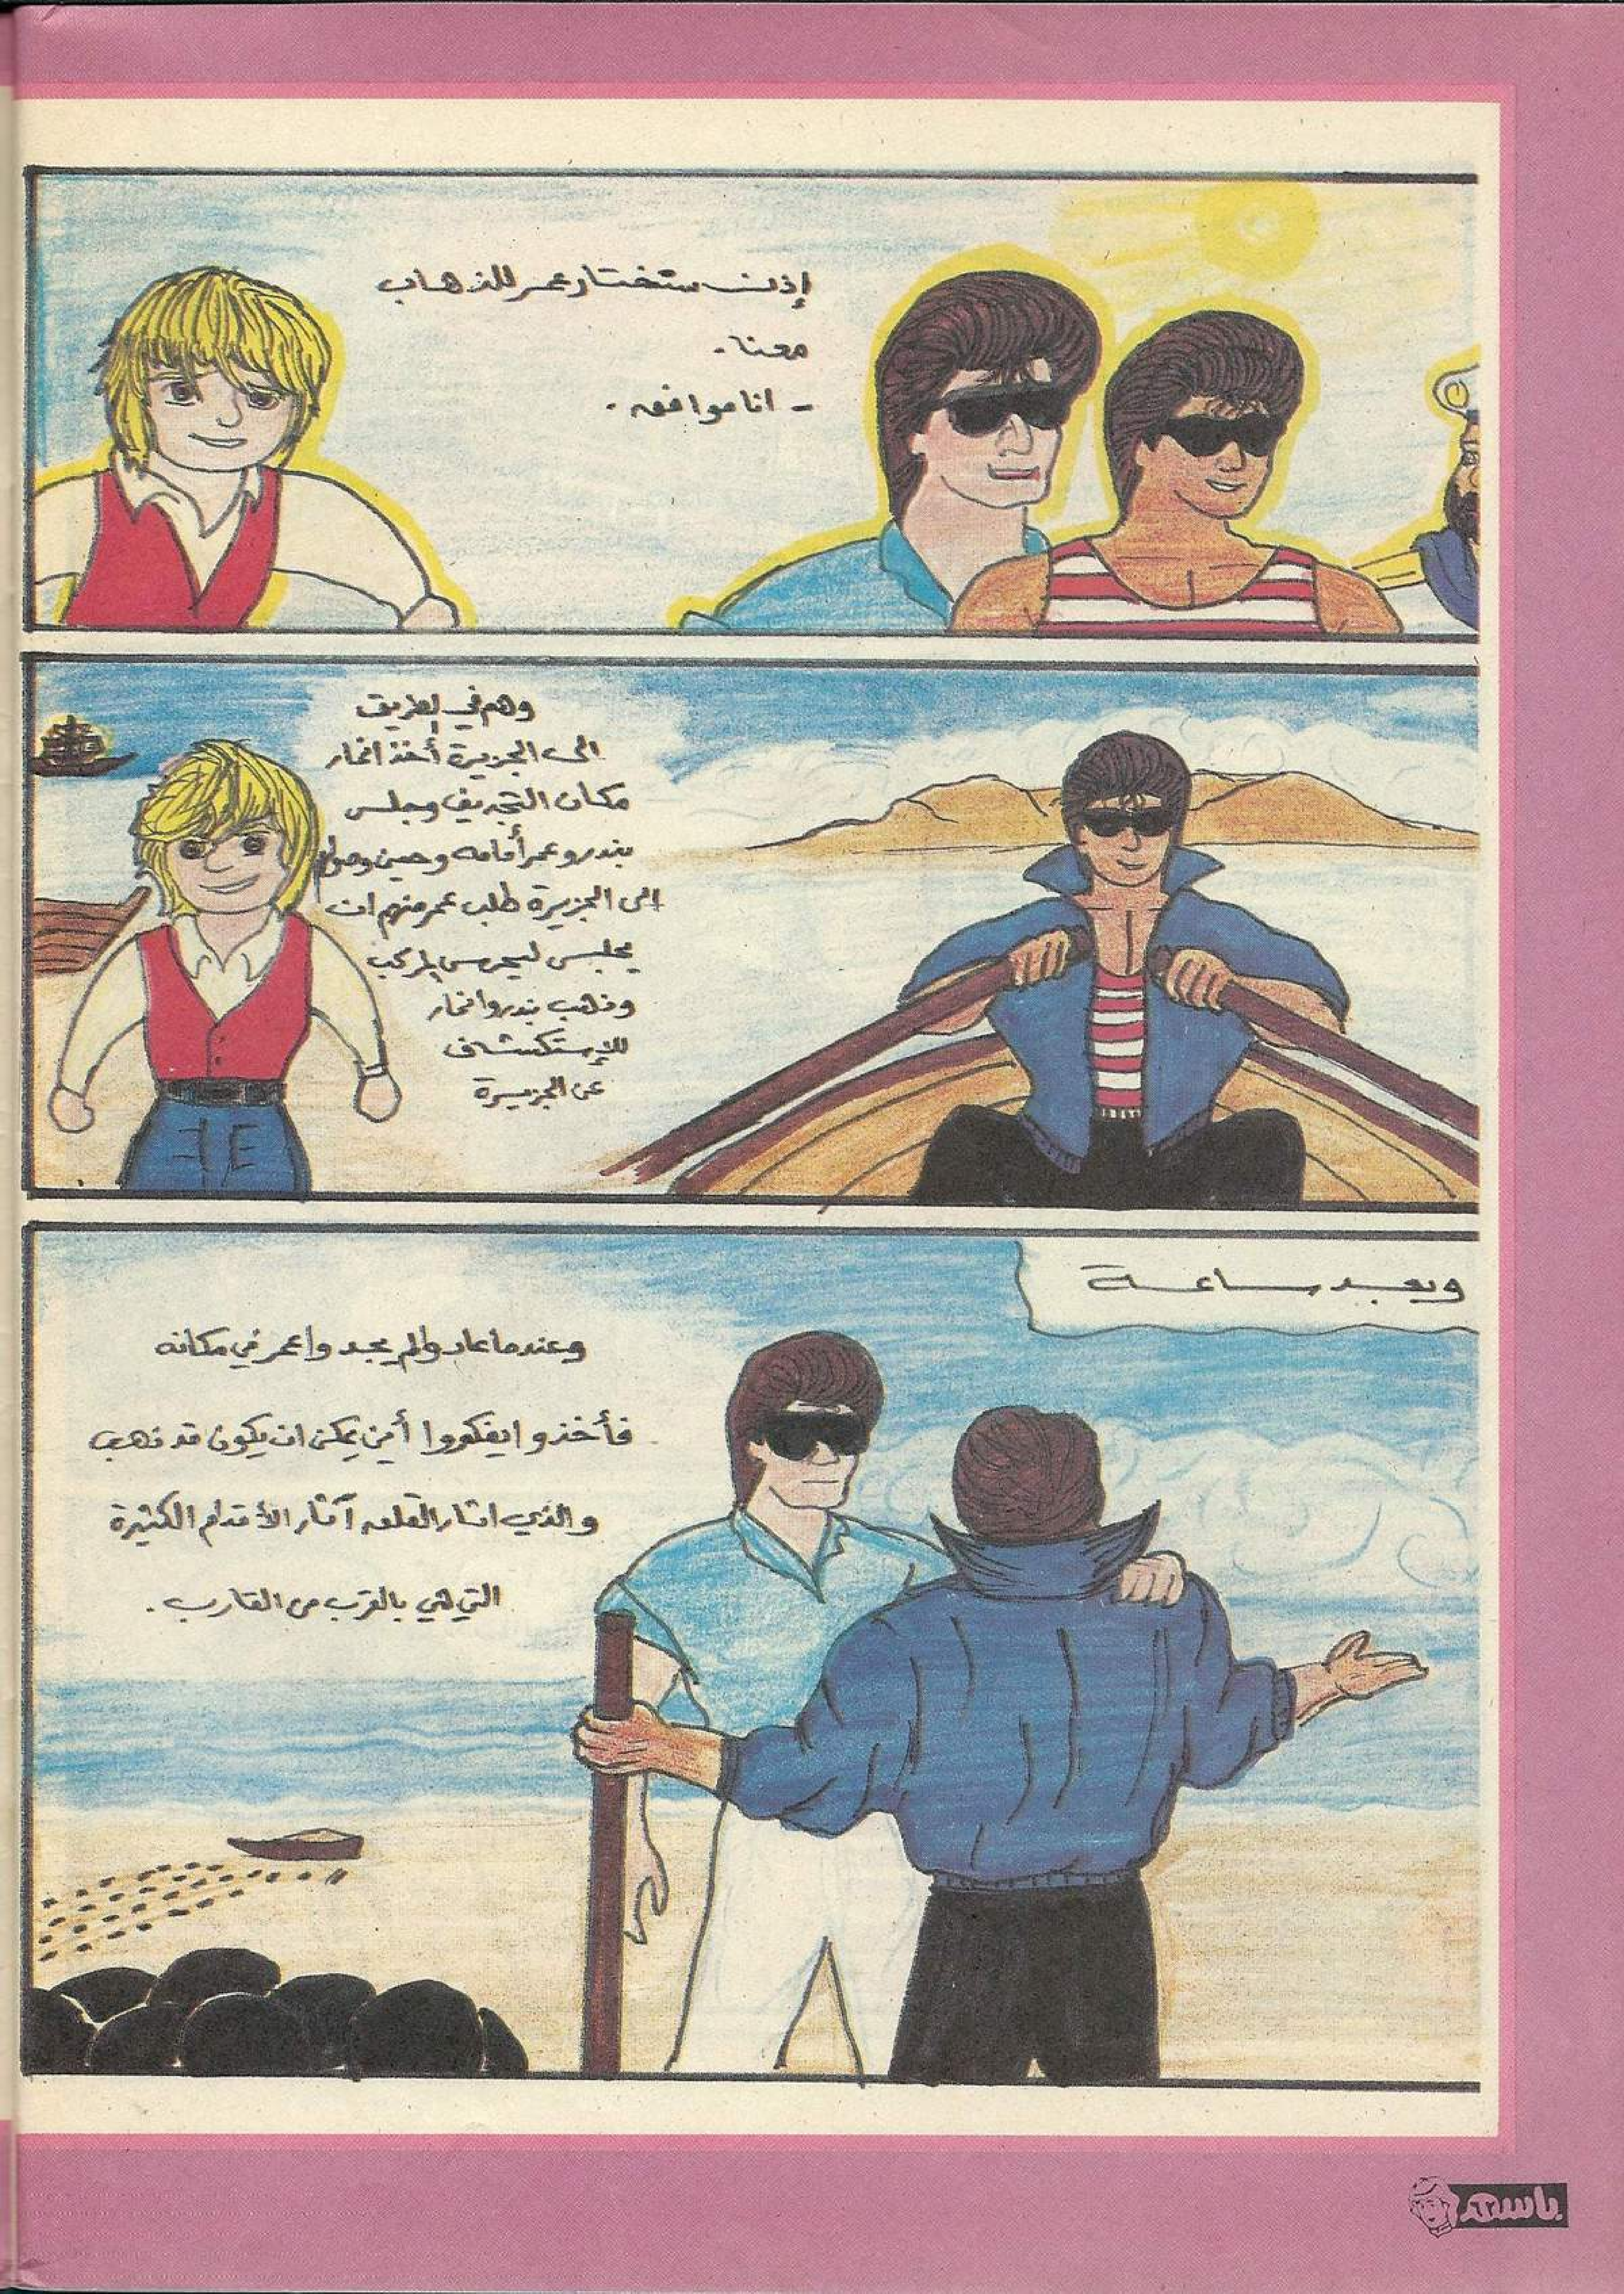 إذن ستختار عمر للذهاب
معنا.
- انا موافقه.
وهم في الطريق
الى الجزيرة أخذ انمار
مكان التجديف وجلس
بندر وعمر أمامه وحين وصولهم
الى الجزيرة طلب عمر منهم ان
يجلس ليحرس المركب
وذهب بندر وانمار
للإستكشاف
عن الجزيرة
وبعد ساعة
وعندما عادوا لم يجدوا عمر في مكانه
فأخذوا يفكروا أين يمكن ان يكون قد ذهب
والذي اثار القلق آثار الأقدام الكثيرة
التي هي بالقرب من القارب.
باسم